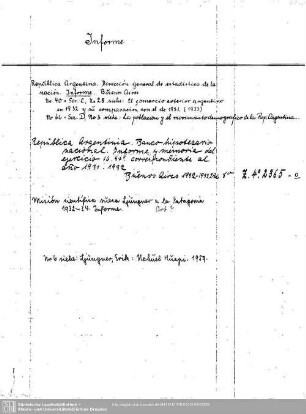 Informe
República Argentina. Dirección general de estadística de la
nación. Informe. Buenos Aires
No 40 = Ser. C, No 28 siehe: El comercio exterior argentino
en 1932 y su comparación con el de 1931 (1933)
No 46 = Ser. D, No 3 siehe: La población y el movimiento demográfico de la Rep. Argentina.
República Argentinia. Banco hipotecario
nacional. Informe y memoria del
ejercicio correspondiente al
año 1911. 1912
Buenos Aires 1912
Z. 4° 2365
Misión científica sueca Ljungner a la Patagonia
1932-34. Informe.
No 6 siehe Ljungner, Erik: Nahuel Huapi. 1959.